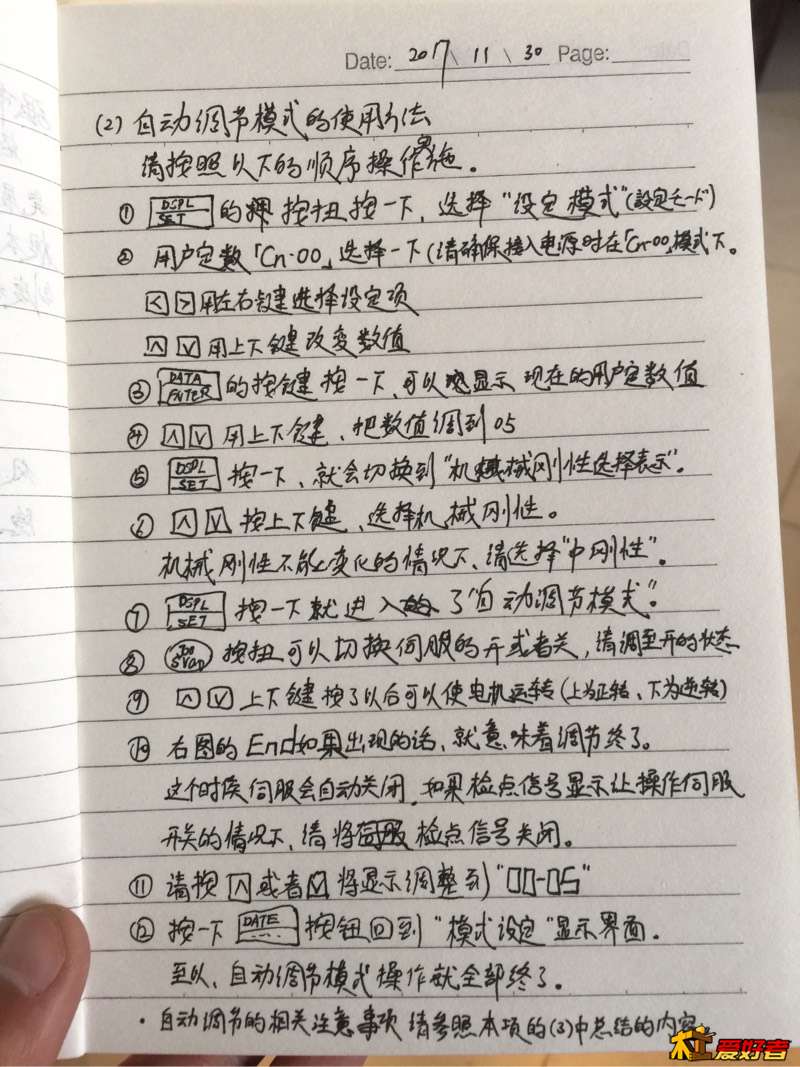 Date: 2017 \ 11 \ 30 Page:
(2) 自动调节模式的使用方法
请按照以下的顺序操作实施。
① DSPL SET 的 按扭按一下, 选择"设定模式"(設定モード)
② 用户定数「Cn-00」选择一下(请确保接入电源时在「Cn-00」模式下。
< > 用左右键选择设定项
∧ ∨ 用上下键改变数值
③ DATA ENTER 的按键按一下, 可以显示 现在的用户定数值
④ ∧ ∨ 用上下键、把数值调到05
⑤ DSPL SET 按一下、就会切换到"机械刚性选择表示"。
⑥ ∧ ∨ 按上下键、选择机械刚性。
机械刚性不能变化的情况下、请选择"中刚性"。
⑦ DSPL SET 按一下就进入了"自动调节模式"。
⑧ SVON 按扭可以切换伺服的开或者关, 请调至开的状态
⑨ ∧ ∨ 上下键按了以后可以使电机运转(上为正转、下为逆转)
⑩ 右图的End如果出现的话、就意味着调节终了。
这个时候伺服会自动关闭, 如果检点信号显示让操作伺服
开关的情况下、请将伺服检点信号关闭。
⑪ 请按 ∧ 或者 ∨ 将显示调整到"00-05"
⑫ 按一下 DATE 按钮回到"模式设定"显示界面.
至以、自动调节模式操作就全部终了。
· 自动调节的相关注意事项 请参照本项的(3)中总结的内容
爱好者